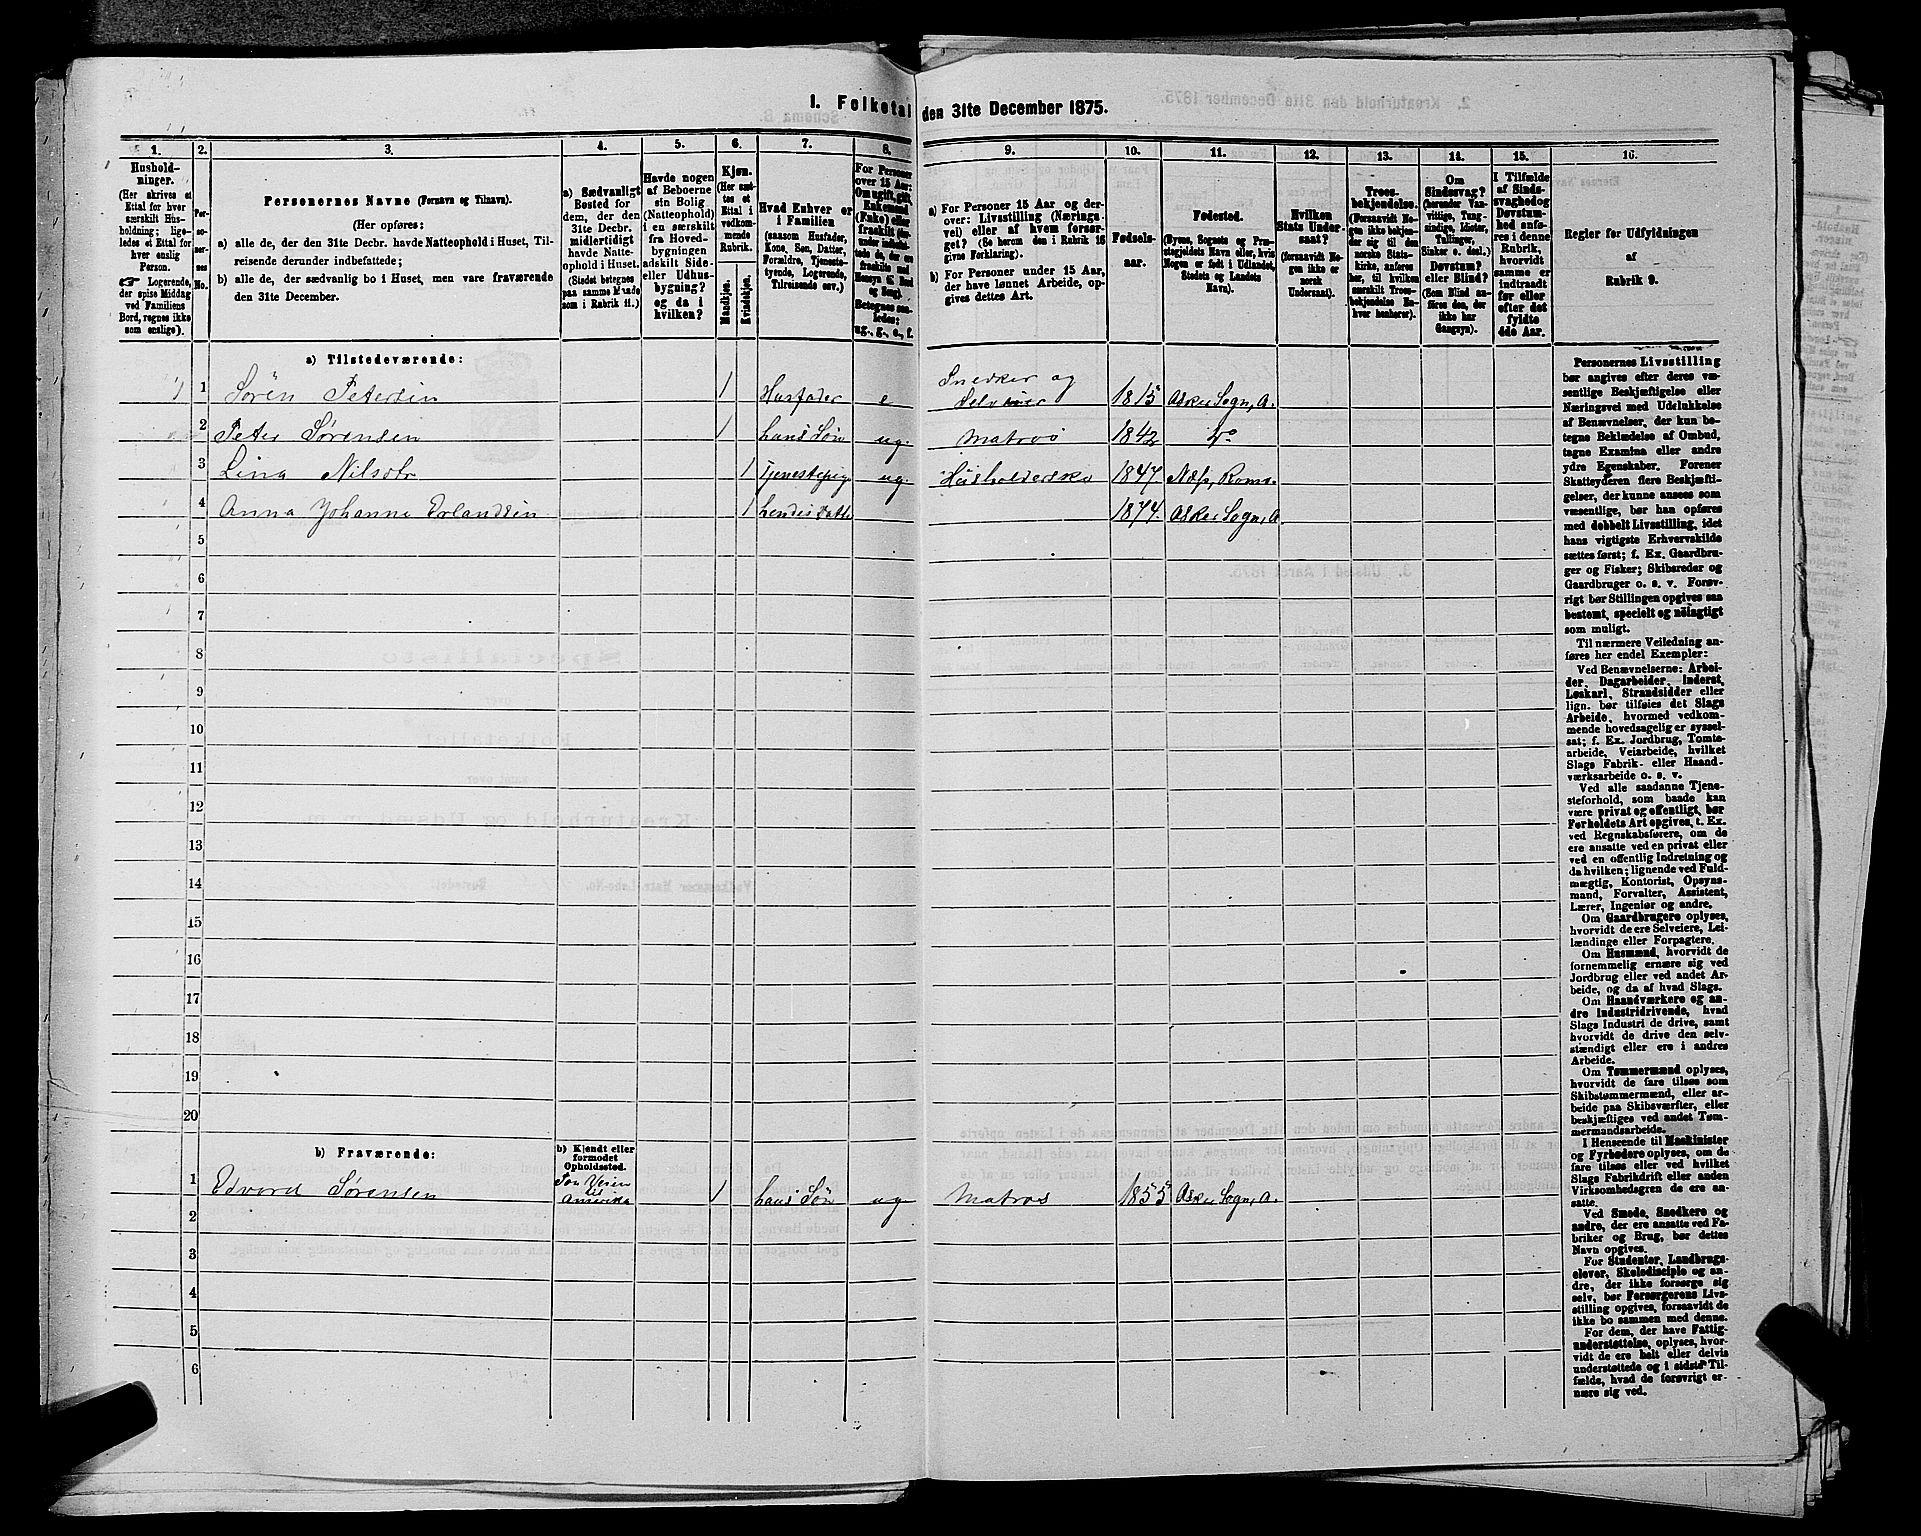 1. Folketal den 31te December 1875.
1.
Husholdninger.
(Her skrives et
Ettal for hver
særskilt Husholdning;
ligeledes et Ettal for
hver enslig
Person.
☞ Logerende,
der spise Middag
ved Familiens
Bord, regnes ikke
som enslige).
2.
Personernes
No.
3.
Personernes Navne (Fornavn og Tilnavn).
(Her opføres:
a) alle de, der den 31te Decbr. havde Natteophold i Huset, Tilreisende derunder indbefattede;
b) alle de, der sædvanlig bo i Huset, men vare fraværende den 31te December.
4.
a) Sædvanligt
Bosted for
dem, der den
31te Decbr.
midlertidigt
havde Natteophold i Huset.
(Stedet betegnes
paa samme Maade
som i Rubrik 11.)
5.
Havde nogen
af Beboerne
sin Bolig
(Natteophold)
i en særskilt
fra Hovedbygningen
adskilt Side-
eller Udhusbygning?
og da i
hvilken?
6.
Kjøn.
(Her sættes et
Ettal i
vedkommende
Rubrik.
Mandkjøn.
Kvindekjøn.
7.
Hvad Enhver er
i Familien
(saasom Husfader,
Kone, Søn, Datter,
Forældre, Tjenestetyende, Logerende,
Tilreisende osv.)
8.
For Personer
over 15 Aar:
Om ugift, gift,
Enkemand
(Enke) eller
fraskilt
Betegnes saaledes:
ug., g., e., f.
9.
a) For Personer 15 Aar og derover: Livsstilling (Næringsvei) eller af hvem forsørget? (Se herom den i Rubrik 16 givne Forklaring).
b) For Personer under 15 Aar, der have lønnet Arbeide, opgives dettes Art.
10.
Fødselsaar.
11.
Fødested.
(Byens, Sognets og Præstegjeldets Navn eller, hvis
Nogen er født i Udlandet,
Stedets og Landets
Navn).
12.
Hvilken
Stats Undersaat?
(forsaavidt Nogen ikke er
norsk
Undersaat).
13.
Troesbekjendelse.
(Forsaavidt Nogen ikke bekjender sig til den
norske Statskirke, anføres her,
til hvilken
særskilt Troesbekjendelse Enhver henhører).
14.
Om
Sindssvag?
(herunder Vanvittige, Tungsindige, Idioter,
Tullinger,
Sinker o. desl.)
Døvstum?
eller Blind?
(Som Blind anføres den, der
ikke har
Gangsyn).
15.
I Tilfælde
af Sindssvaghed og
Døvstumhed anføres i denne
Rubrik,
hvorvidt
samme er
indtraadt
før eller
efter det
fyldte
4de Aar.
16.
Regler for Udfyldningen
af
Rubrik 9.
a) Tilstedeværende:
1 1 Søren Petersen 1 Husfader e Snedker og Selveier 1815 Asker Sogn, A.
2 Peter Sørensen 1 hans Søn ug. Matros 1842 Do
3 Lina Nilsdtr 1 Tjenestepige ug. Husholderske 1847. Næs, Roms.
4 Anna Johanne Erlandsen 1 hendes Datter 1874. Asker Sogn, A.
5
6
7
8
9
10
11
12
13
14
15
16
17
18
19
20
b) Fraværende:
b) Kjendt eller
formodet
Opholdssted.
1 Edvard Sørensen Paa Veien til Amerika 1 hans Søn ug Matros 1855 Asker Sogn, A.
2
3
4
5
6
Personernes Livsstilling
bør angives efter deres væsentlige Beskjæftigelse eller
Næringsvei med Udelukkelse
af Benævnelser, der kun betegne Beklædelse af Ombud,
tagne Examina eller andre
ydre Egenskaber. Forener
Skatteyderen flere Beskjæftigelser, der kunne ansees som
væsentlige, bør han opføres
med dobbelt Livsstilling, idet
hans vigtigste Erhvervskilde
sættes først; f. Ex. Gaardbruger og Fisker; Skibsreder og
Gaardbruger o. s. v. Forøvrigt bør Stillingen opgives saa
bestemt, specielt og nøiagtigt
som muligt.
Til nærmere Veiledning anføres her endel Exempler:
Ved Benævnelserne: Arbeider, Dagarbeider, Inderst,
Løskarl, Strandsidder eller
lign. bør tilføies det Slags
Arbeide, hvormed vedkommende hovedsagelig er sysselsat; f. Ex. Jordbrug, Tomtearbeide, Veiarbeide, hvilket
Slags Fabrik- eller Haandværksarbeide o. s. v.
Ved alle saadanne Tjenesteforhold, som baade kan
være privat og offentligt, bør
Forholdets Art opgives, t. Ex.
ved Regnskabsførere, om de
ere ansatte ved en privat eller
ved en offentlig Indretning og
da hvilken; lignende ved Fuldmægtig, Kontorist, Opsynsmand, Forvalter, Assistent,
Lærer, Ingeniør og andre.
Om Gaardbrugere oplyses,
hvorvidt de ere Selveiere, Leilændinge eller Forpagtere.
Om Husmænd, hvorvidt de
fornemmelig ernære sig ved
Jordbrug eller ved andet Arbeide, og da af hvad Slags.
Om Haandværkere og andre Industridrivende, hvad
Slags Industri de drive, samt
hvorvidt de drive den selvstændigt eller ere i andres
Arbeide.
Om Tømmermænd oplyses,
hvorvidt de fare tilsøs som
Skibstømmermænd, eller arbeide paa Skibsværfter, eller
beskjæftiges ved andet Tømmermandsarbeide.
I Henseende til Maskinister
og Fyrbødere oplyses, om de
fare tilsøs eller ved hvilket
Slags Fabrikdrift eller anden
Virksomhedsgren de ere ansatte.
Ved Smede, Snedkere og
andre, der ere ansatte ved Fabriker og Brug, bør dettes
Navn opgives.
For Studenter, Landbrugselever, Skoledisciple og andre, der ikke forsørge sig
selv, bør Forsørgerens Livsstilling opgives, forsaavidt de
ikke bo sammen med denne.
For dem, der have Fattigunderstøttelse, oplyses, hvorvidt de ere helt eller delvis
understøttede og i sidste Tilfælde, hvad de forøvrigt ernære sig ved.